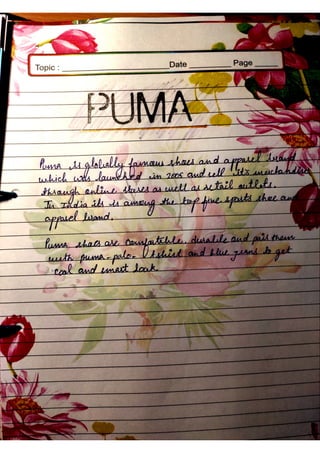 Topic : Date Page
PUMA
Puma is globally famous shoes and apparel brand
which was launched in 2005 and sell its merchandise
through online stores as well as retail outlets.
In India its is among the top five sports shoe and
apparel brand.
Puma shoes are comfortable, durable and pair them
with puma-polo-t shirt and blue jeans to get
cool and smart look